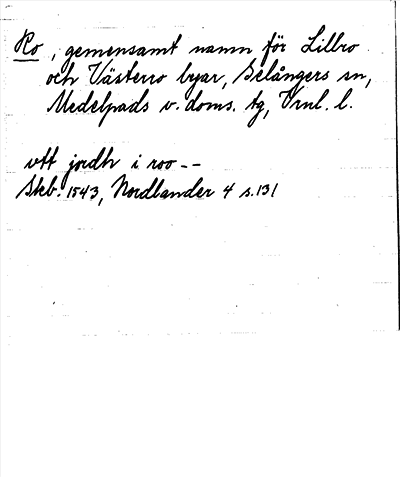 Ro, gemensamt namn för Lillro
och Västerro byar, Selångers sn,
Medelpads v. doms. tg, Vrnl. l.
vtt jordh i roo --
Skb. 1543, Nordlander 4 s. 131